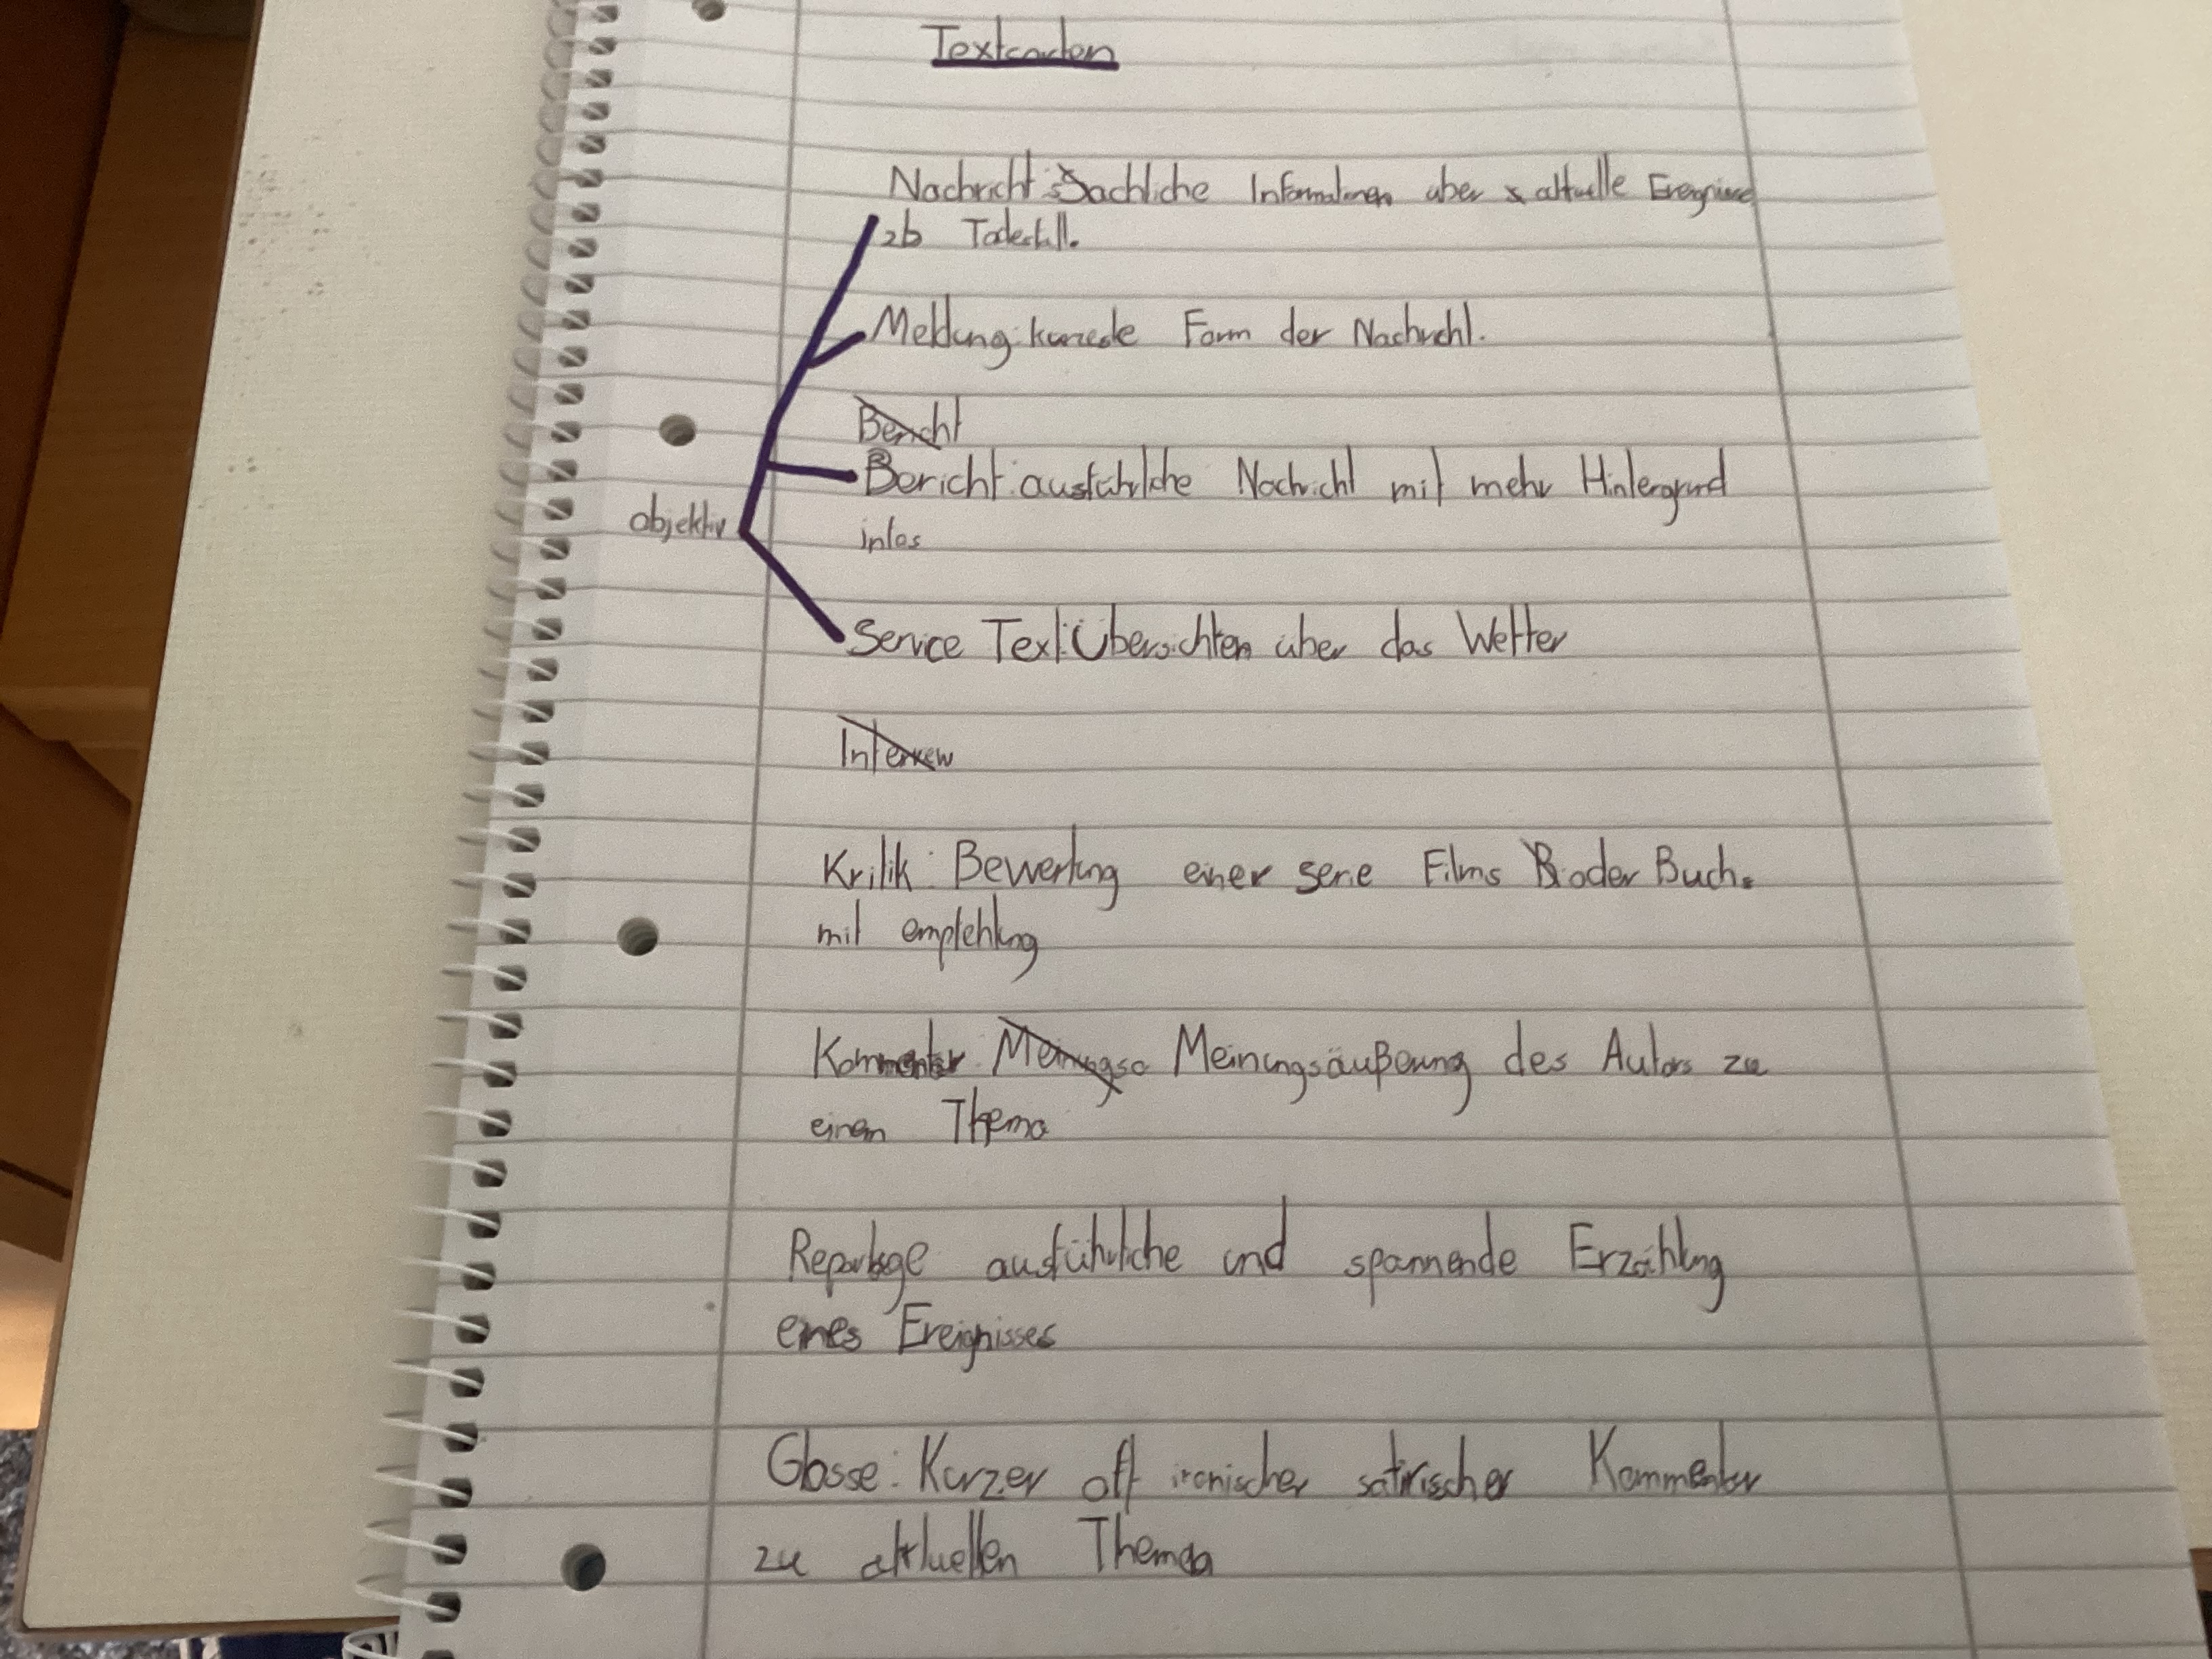 Textsorten
Nachricht: Sachliche Informationen über aktuelle Ereignisse
zb Todesfall.
Meldung: kürzeste Form der Nachricht.
Bericht
Bericht: ausführliche Nachricht mit mehr Hintergrund
infos
objektiv
Service Text: Übersichten über das Wetter
Interview
Kritik: Bewertung einer serie Films B oder Buch.
mit empfehlung
Kommentar Meinungsa Meinungsäußerung des Autors zu
einem Thema
Reportage ausführliche und spannende Erzählung
eines Ereignisses
Glosse: Kurzer oft ironischer satirischer Kommentar
zu aktuellen Thema